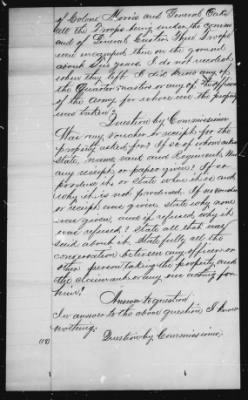 of Colonel Morris and General Custer
all the Troops being under the command
and of General Custer These Troops
were encamped then on the ground
about six years. I do not recollect
when they left. I did know any of
the Quarter masters or any of the officers
of the army for whose use the property
was taken?
Question by Commissioner
Was any voucher or receipt for the
property asked for? If so of whom when
State, name rank and Regiment. Was
any receipt or paper given? If so
produce it or State where it is and
why it is not produced. If no voucher
or receipt was given state why none
was given, and if refused why it
was refused? State all that was
said about it. State fully all the
conversation between any officer or
other person taking the property and
the claimant or any one acting for
him?
Answer to question
In answer to the above question, I know
nothing.
Question by Commissioner